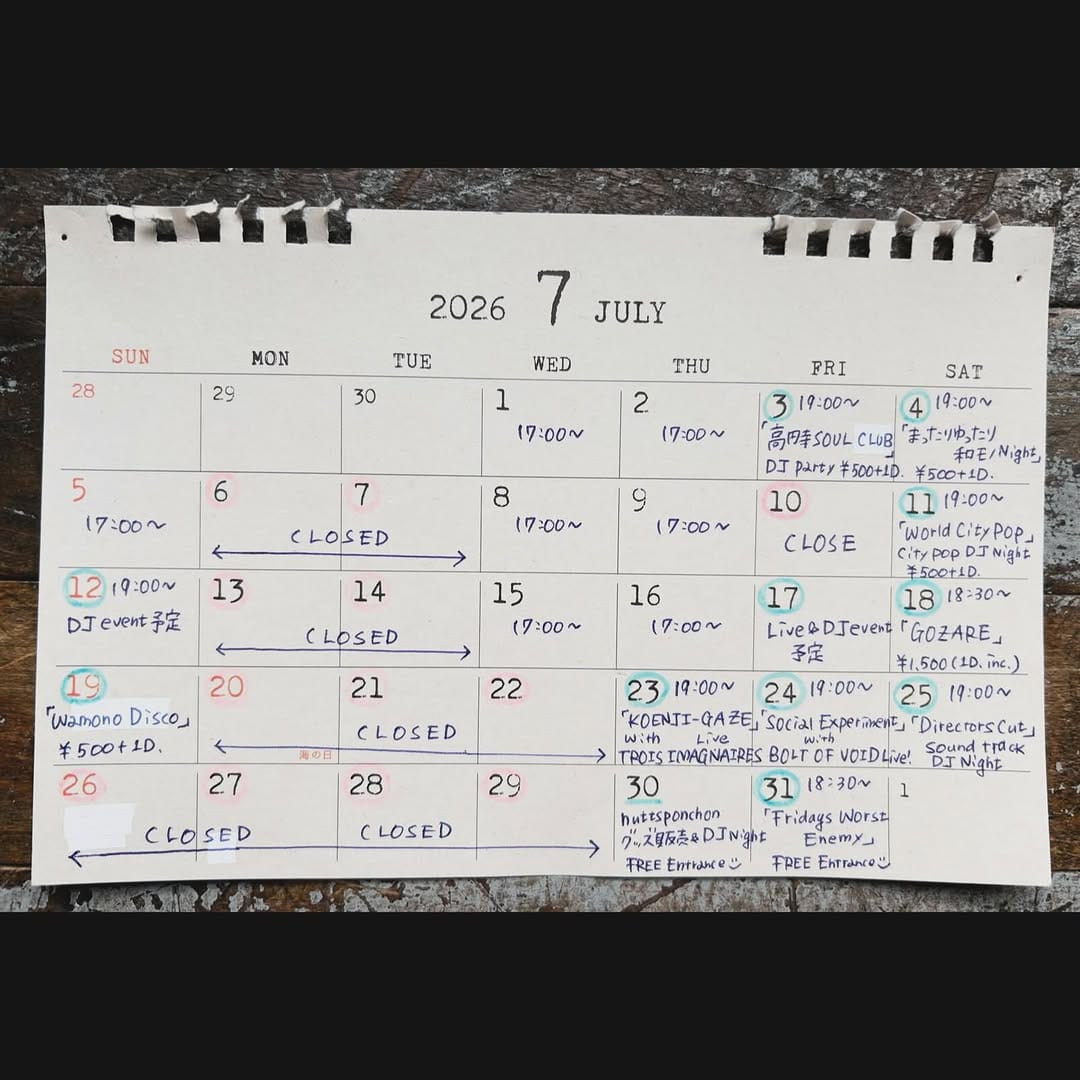 2026 7 JULY
SUN MON TUE WED THU FRI SAT
28
29
30
1
17:00~
2
17:00~
3 19:00~
「高円寺SOUL CLUB」
DJ party ¥500+1D.
4 19:00~
「まったりゆったり
和モノNight」
¥500+1D.
5
17:00~
6
7
CLOSED
8
17:00~
9
17:00~
10
CLOSE
11 19:00~
「World City Pop」
City pop DJ Night
¥500+1D.
12 19:00~
DJ event予定
13
14
CLOSED
15
17:00~
16
17:00~
17
Live&DJevent
予定
18 18:30~
「GOZARE」
¥1.500(1D. inc.)
19
「Wamono Disco」
¥500+1D.
20
海の日
21
CLOSED
22
23 19:00~
「KOENJI-GAZE」
with Live
TROIS IMAGNAIRES
24 19:00~
「Social Experiment」
with
BOLT OF VOID Live!
25 19:00~
「Directors Cut」
Sound track
DJ Night
26
27
CLOSED
28
CLOSED
29
30
nuttsponchon
グッズ販売&DJ Night
FREE Entrance
31 18:30~
「Fridays Worst
Enemy」
FREE Entrance
1